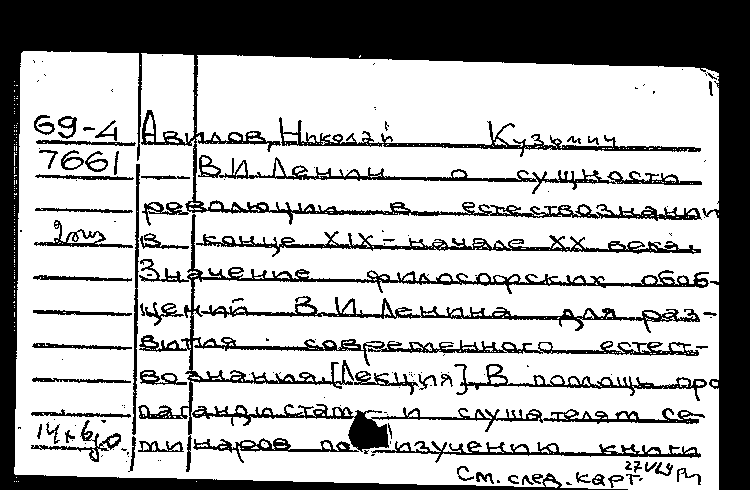 69-4 Авилов, Николай Кузьмич
7661 В.И.Ленин о сущности
революции в естествознании
2 экз в конце XIX - начале XX века.
Значение философских обоб-
щений В.И.Ленина для раз-
вития современного естест-
вознания. [Лекция]. В помощь про
пагандистам и слушателям се-
минаров по изучению книги
См. след. карт.